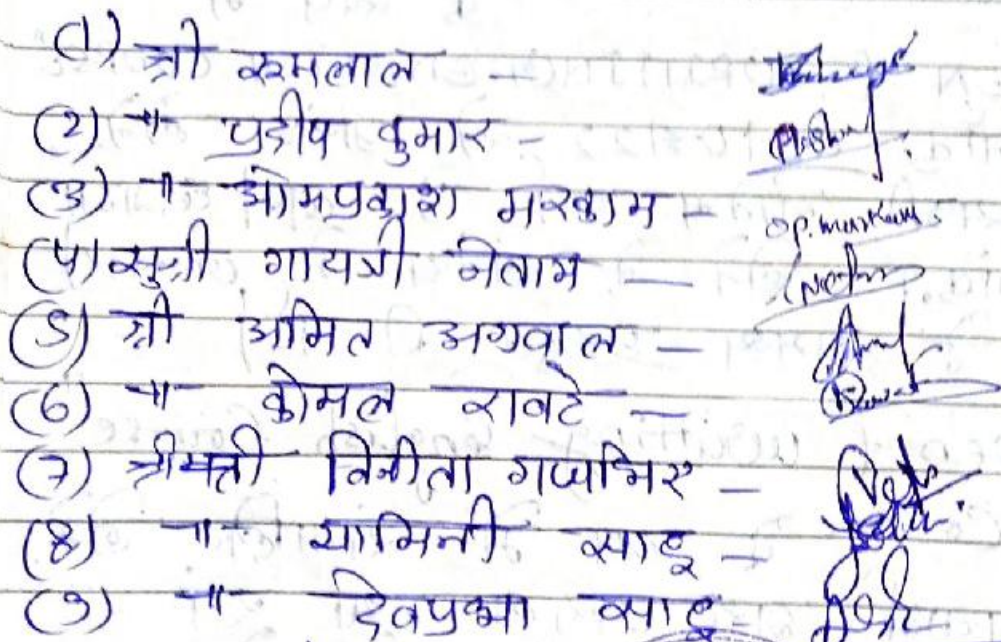 (1) श्री रूमलाल —
(2) -॥- प्रदीप कुमार -
(3) -॥- ओमप्रकाश मरकाम — O.P. Markam
(4) सुश्री गायत्री नेताम —
(5) श्री अमित अग्रवाल —
(6) -॥- कोमल रावटे —
(7) श्रीमती विनीता —
(8) -॥- यामिनी साहू —
(9) -॥- देवप्रभा साहू